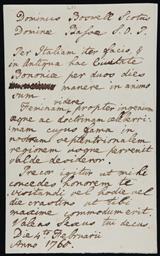 Dominus Boswell Scotus
Dominæ Bassæ S. D. P.
Per Italiam iter facio, &
in antiqua hac Civitate
Bononiæ per duos dies
manere in animo
videre
Feminam, propter ingenium
æque ac doctrinam celeberri-
mam cujus fama in
nostram septentrionalem
regionem usque pervenit
valde desidero.
Precor igitur ut mihi
concedas honorem te
visitandi vel hodie vel
die crastino ut tibi
maxime commodum erit.
Valeas sexus tui decus.
Die 4to Februarii
Anno 1765.